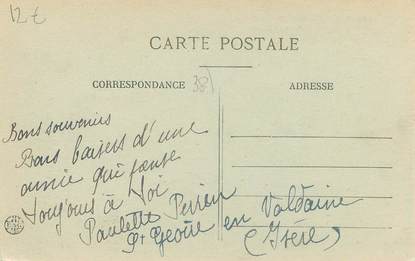 12 €
CARTE POSTALE
CORRESPONDANCE
38
ADRESSE
Bons souvenirs
Bons baisers d'une
amie qui pense
toujours à toi
Paulette Perrin
St Geoire en Valdaine
(Isère)